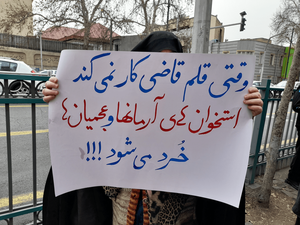 وقتی قلم قاضی کار نمی کند
استخوان های آرمانها و عجمیان ها
خُرد می شود !!!